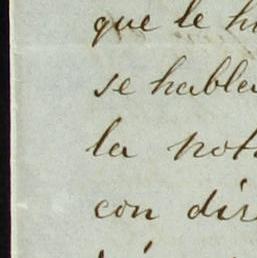 que le h
se habla
la not
con dis